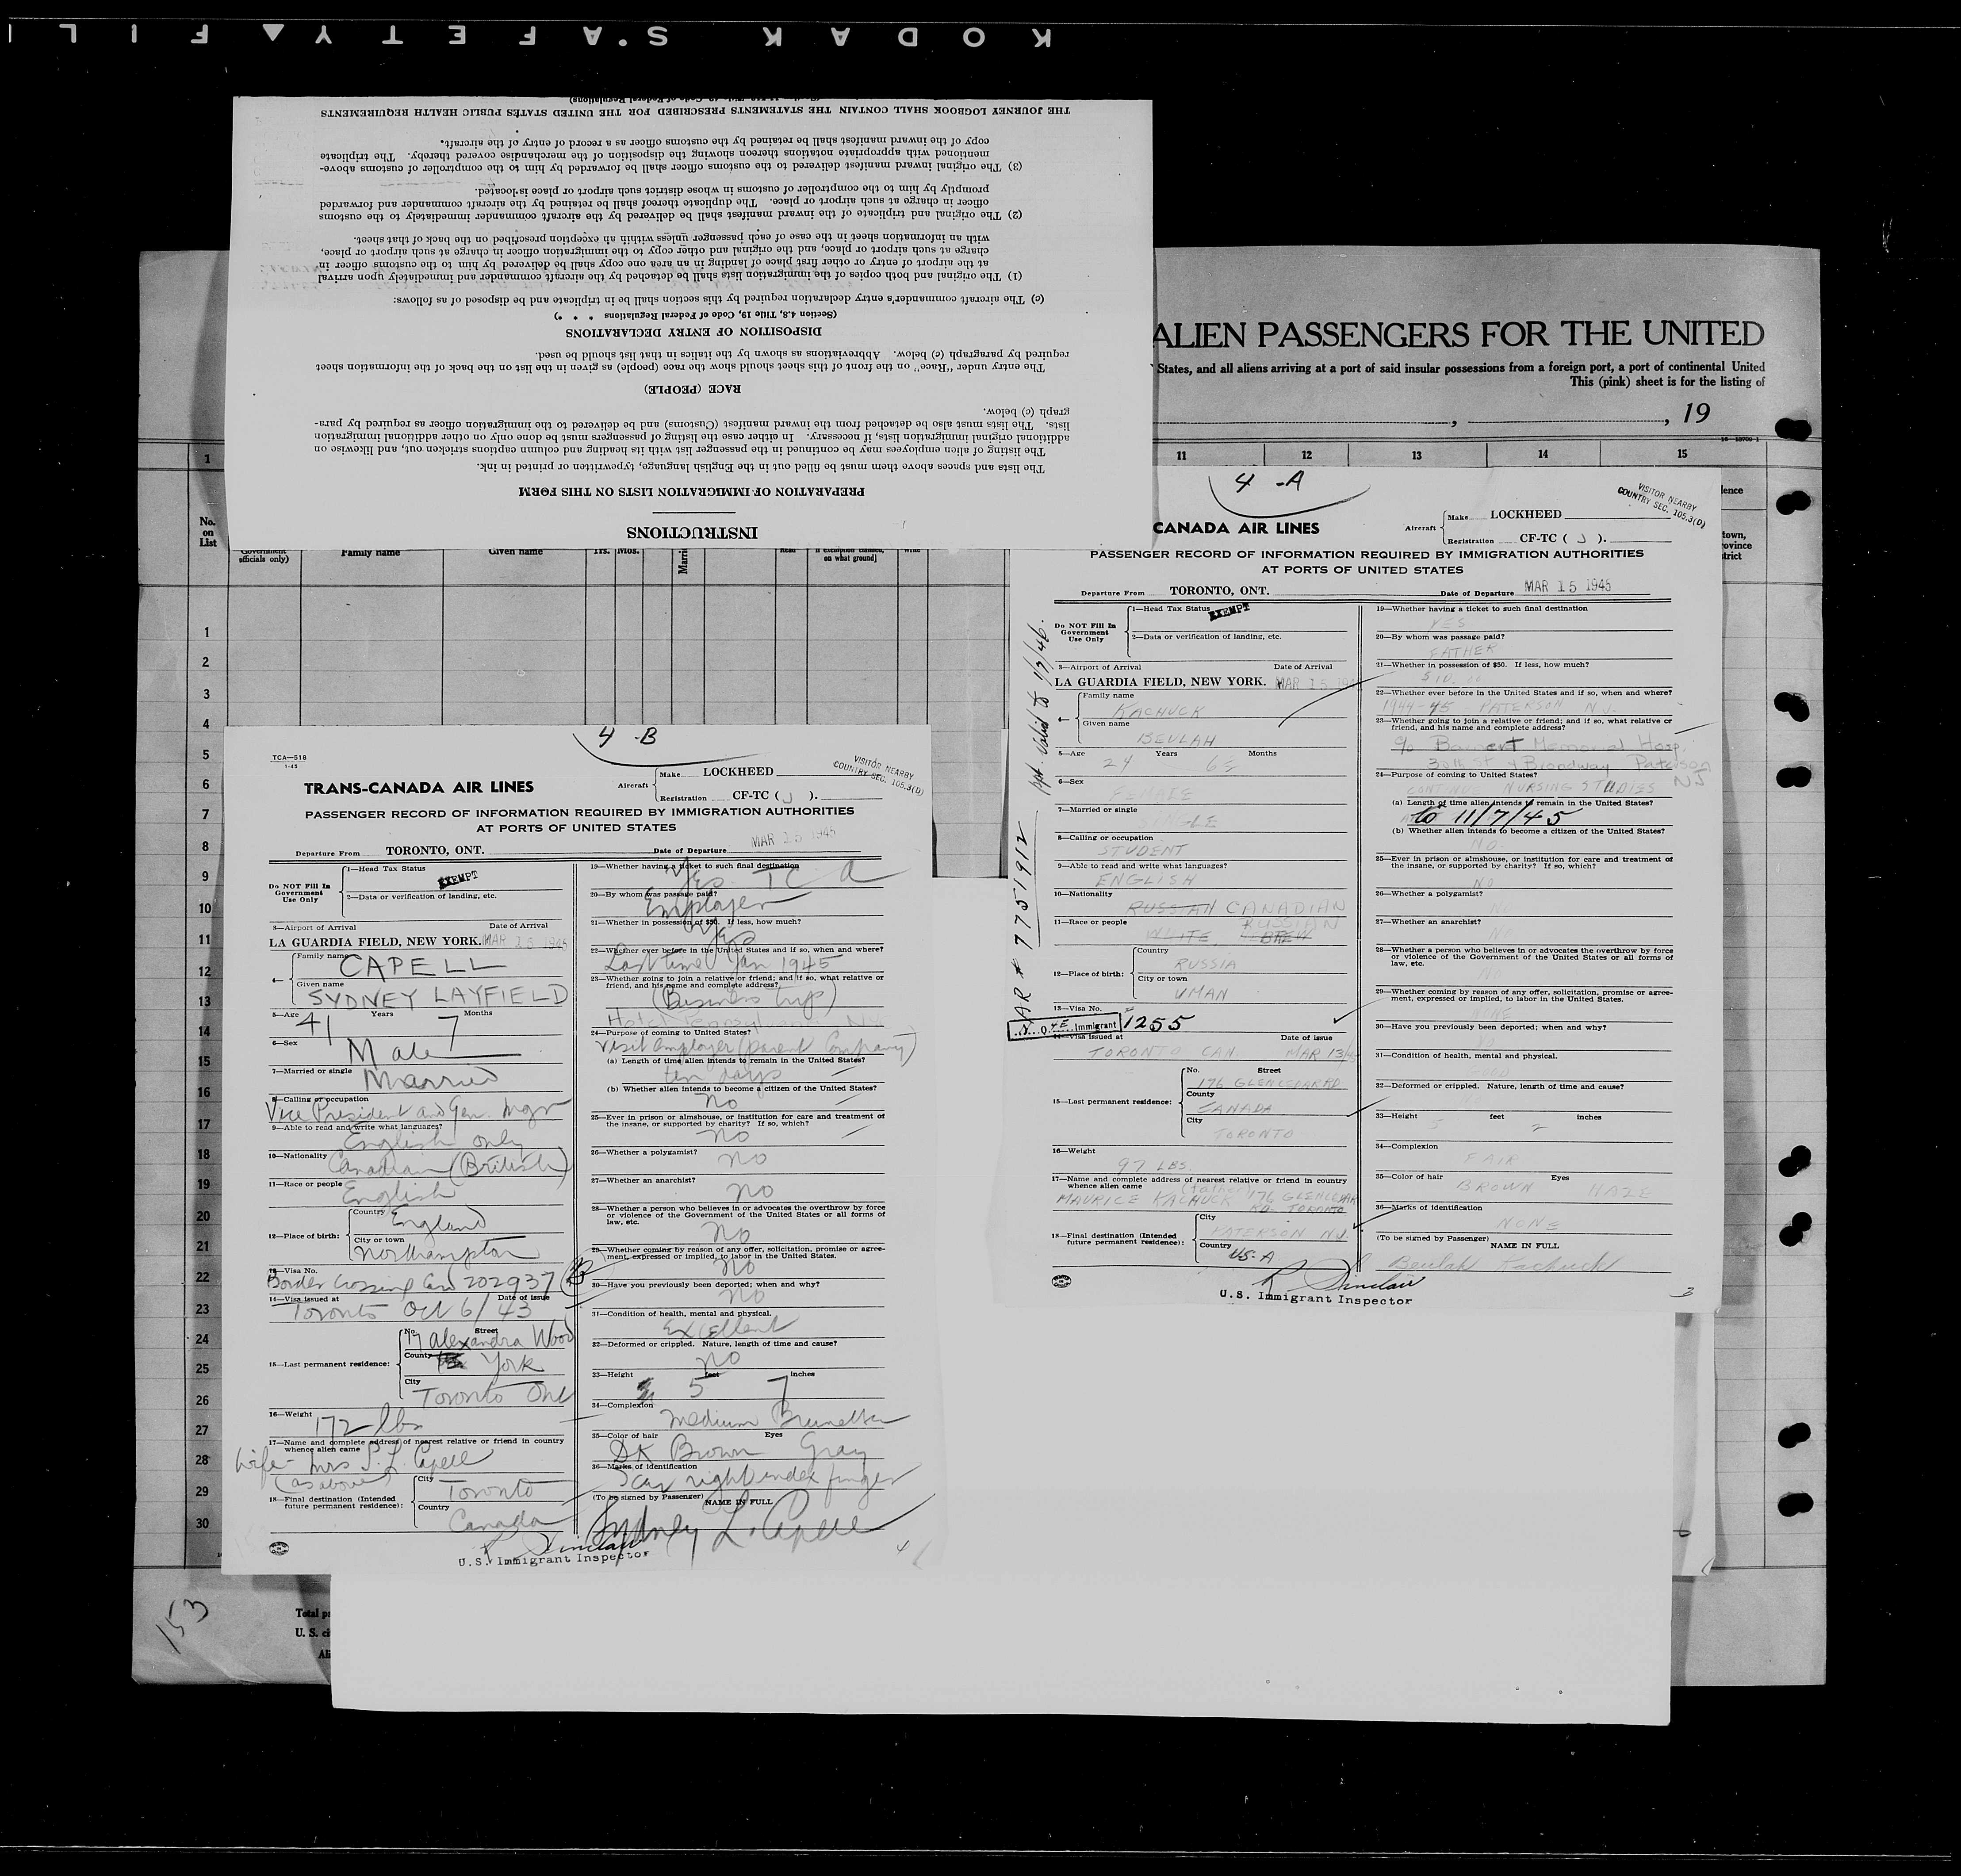 KODAK S.AFETY▲FIL
THE JOURNEY LOGBOOK SHALL CONTAIN THE STATEMENTS PRESCRIBED FOR THE UNITED STATES PUBLIC HEALTH REQUIREMENTS
INSTRUCTIONS
PREPARATION OF IMMIGRATION LISTS ON THIS FORM
The lists and spaces above them must be filled out in the English language, typewritten or printed in ink.
The listing of alien employees may be continued in the passenger list with its heading and column captions stricken out, and likewise on
additional original immigration lists, if necessary. In either case the listing of passengers must be done only on other additional immigration
lists. The lists must also be detached from the inward manifest (Customs) and be delivered to the immigration officer as required by para-
graph (c) below.
RACE (PEOPLE)
The entry under "Race" on the front of this sheet should show the race (people) as given in the list on the back of the information sheet
required by paragraph (c) below. Abbreviations as shown by the italics in that list should be used.
DISPOSITION OF ENTRY DECLARATIONS
(Section 4.8, Title 19, Code of Federal Regulations * * *)
(c) The aircraft commander's entry declaration required by this section shall be in triplicate and be disposed of as follows:
(1) The original and both copies of the immigration lists shall be detached by the aircraft commander and immediately upon arrival
at the airport of entry or other first place of landing in an area one copy shall be delivered by him to the customs officer in
charge at such airport or place, and the original and other copy to the immigration officer in charge at such airport or place,
with an information sheet in the case of each passenger unless within an exception prescribed on the back of that sheet.
(2) The original and triplicate of the inward manifest shall be delivered by the aircraft commander immediately to the customs
officer in charge at such airport or place. The duplicate thereof shall be retained by the aircraft commander and forwarded
promptly by him to the comptroller of customs in whose district such airport or place is located.
(3) The original inward manifest delivered to the customs officer shall be forwarded by him to the comptroller of customs above-
mentioned with appropriate notations thereon showing the disposition of the merchandise covered thereby. The triplicate
copy of the inward manifest shall be retained by the customs officer as a record of entry of the aircraft.
ALIEN PASSENGERS FOR THE UNITED
States, and all aliens arriving at a port of said insular possessions from a foreign port, a port of continental United
This (pink) sheet is for the listing of
, , 19
1 11 12 13 14 15
No. on List
officials only) Family name Given name Yrs. Mos. Read on what ground]
1
2
3
4
5
6
7
8
9
10
11
12
13
14
15
16
17
18
19
20
21
22
23
24
25
26
27
28
29
30
153
Total
U. S.
4 -B
TCA—518
1-45
TRANS-CANADA AIR LINES
Aircraft Make LOCKHEED
Registration CF-TC ( J ).
VISITOR NEARBY
COUNTRY SEC. 105.3(D)
PASSENGER RECORD OF INFORMATION REQUIRED BY IMMIGRATION AUTHORITIES
AT PORTS OF UNITED STATES
Departure From TORONTO, ONT. Date of Departure MAR 15 1945
Do NOT Fill In Government Use Only
1—Head Tax Status EXEMPT
2—Data or verification of landing, etc.
3—Airport of Arrival Date of Arrival
LA GUARDIA FIELD, NEW YORK. MAR 15 1945
Family name CAPELL
Given name SYDNEY LAYFIELD
5—Age 41 Years 7 Months
6—Sex Male
7—Married or single Married
8—Calling or occupation
Vice President and Gen. Mgr
9—Able to read and write what languages?
English only
10—Nationality Canadian (British)
11—Race or people English
12—Place of birth: Country England
City or town Northampton
13—Visa No.
Border Crossing Card 202937 B
14—Visa issued at Date of issue
Toronto Oct 6/43
15—Last permanent residence: No. Street 17 Alexandra Wood
County York
City Toronto Ont
16—Weight 172 lbs
17—Name and complete address of nearest relative or friend in country
whence alien came
Wife - Mrs S. L. Capell
(as above)
18—Final destination (Intended future permanent residence): City Toronto
Country Canada
19—Whether having a ticket to such final destination
Yes TCA
20—By whom was passage paid?
Employer
21—Whether in possession of $50. If less, how much?
Yes
22—Whether ever before in the United States and if so, when and where?
Last time Jan 1945
23—Whether going to join a relative or friend; and if so, what relative or
friend, and his name and complete address?
(Business trip)
Hotel Pennsylvania N.Y.
24—Purpose of coming to United States?
Visit employer (parent Company)
(a) Length of time alien intends to remain in the United States?
ten days
(b) Whether alien intends to become a citizen of the United States?
No
25—Ever in prison or almshouse, or institution for care and treatment of
the insane, or supported by charity? If so, which?
no
26—Whether a polygamist?
no
27—Whether an anarchist?
no
28—Whether a person who believes in or advocates the overthrow by force
or violence of the Government of the United States or all forms of
law, etc.
No
29—Whether coming by reason of any offer, solicitation, promise or agree-
ment, expressed or implied, to labor in the United States.
no
30—Have you previously been deported; when and why?
no
31—Condition of health, mental and physical.
Excellent
32—Deformed or crippled. Nature, length of time and cause?
no
33—Height 5 feet 7 inches
34—Complexion Medium Brunette
35—Color of hair Eyes
DK Brown Gray
36—Marks of identification
Scar right index finger
(To be signed by Passenger) NAME IN FULL
Sydney L. Capell
R Sinclair
U.S. Immigrant Inspector
4 -A
CANADA AIR LINES
Aircraft Make LOCKHEED
Registration CF-TC ( J ).
VISITOR NEARBY
COUNTRY SEC. 105.3(D)
PASSENGER RECORD OF INFORMATION REQUIRED BY IMMIGRATION AUTHORITIES
AT PORTS OF UNITED STATES
Departure From TORONTO, ONT. Date of Departure MAR 15 1945
AR # 7751912 ppt. valid to 1/9/46.
Do NOT Fill In Government Use Only
1—Head Tax Status EXEMPT
2—Data or verification of landing, etc.
3—Airport of Arrival Date of Arrival
LA GUARDIA FIELD, NEW YORK. MAR 15 194
Family name KACHUCK
Given name BEULAH
5—Age 24 Years Months
6—Sex FEMALE
7—Married or single SINGLE
8—Calling or occupation
STUDENT
9—Able to read and write what languages?
ENGLISH
10—Nationality RUSSIAN CANADIAN
11—Race or people WHITE RUSSIAN
12—Place of birth: Country RUSSIA
City or town UMAN
13—Visa No.
Immigrant #1255
14—Visa issued at Date of issue
TORONTO CAN MAR 13/45
15—Last permanent residence: No. Street 176 GLENCEDAR RD
County CANADA
City TORONTO
16—Weight 97 LBS.
17—Name and complete address of nearest relative or friend in country
whence alien came (father)
MAURICE KACHUCK 176 GLENCEDAR
RD. TORONTO
18—Final destination (Intended future permanent residence): City PATERSON N.J.
Country U.S.A
19—Whether having a ticket to such final destination
YES
20—By whom was passage paid?
FATHER
21—Whether in possession of $50. If less, how much?
$10.00
22—Whether ever before in the United States and if so, when and where?
1944-45 - PATERSON N.J.
23—Whether going to join a relative or friend; and if so, what relative or
friend, and his name and complete address?
c/o Barnert Memorial Hosp.
30th St & Broadway Paterson
NJ
24—Purpose of coming to United States?
CONTINUE NURSING STUDIES
(a) Length of time alien intends to remain in the United States?
to 11/7/45
(b) Whether alien intends to become a citizen of the United States?
NO.
25—Ever in prison or almshouse, or institution for care and treatment of
the insane, or supported by charity? If so, which?
NO
26—Whether a polygamist?
NO
27—Whether an anarchist?
NO
28—Whether a person who believes in or advocates the overthrow by force
or violence of the Government of the United States or all forms of
law, etc.
29—Whether coming by reason of any offer, solicitation, promise or agree-
ment, expressed or implied, to labor in the United States.
NONE
30—Have you previously been deported; when and why?
NO
31—Condition of health, mental and physical.
GOOD
32—Deformed or crippled. Nature, length of time and cause?
33—Height 5 feet 2 inches
34—Complexion FAIR
35—Color of hair BROWN Eyes HAZE
36—Marks of identification
NONE
(To be signed by Passenger) NAME IN FULL
Beulah Kachuck
R Sinclair
U.S. Immigrant Inspector
3